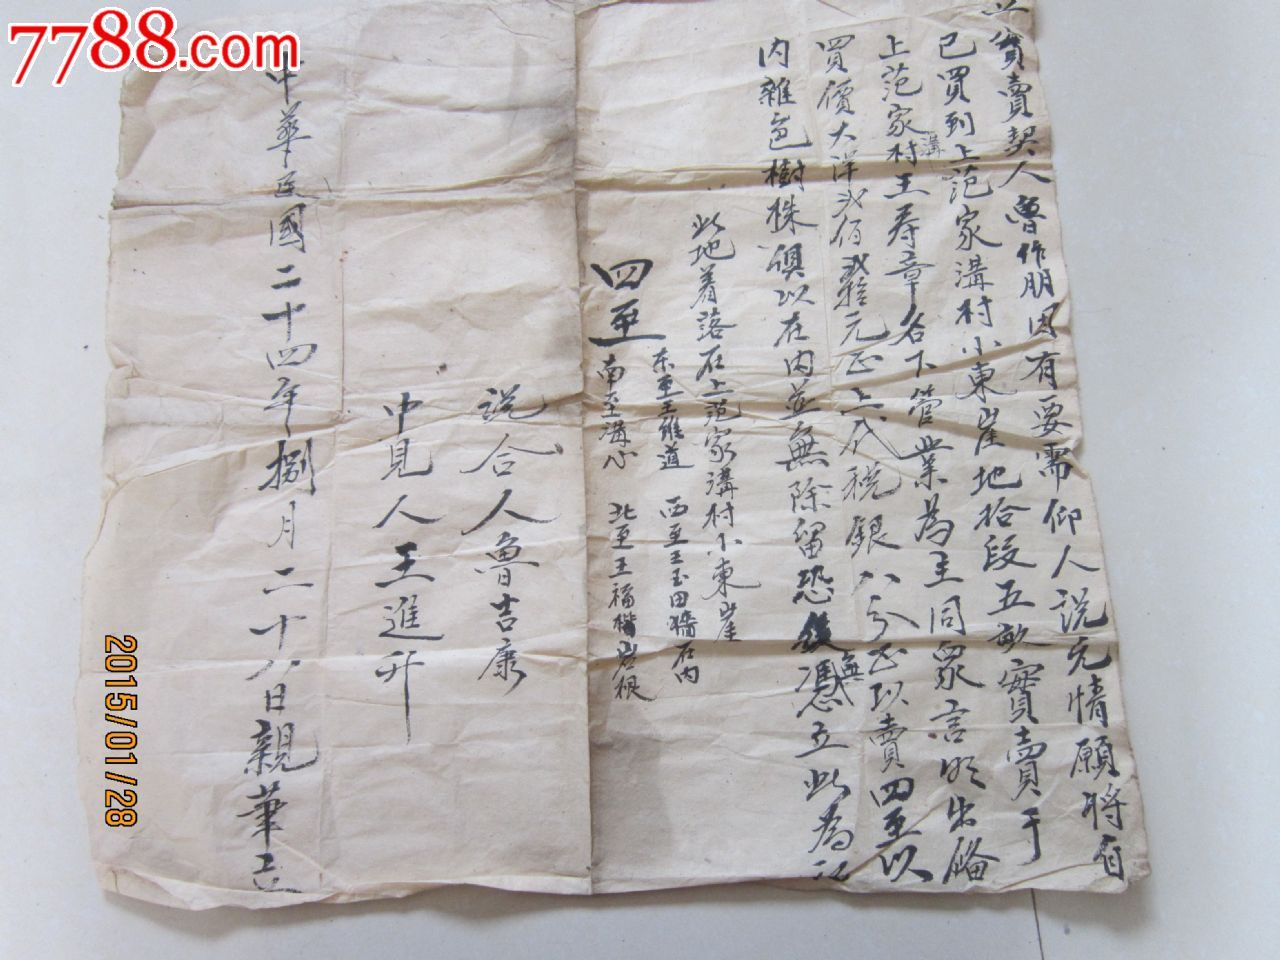 立賣賣契人魯作朋因有要需仰人说允情願將自
已買到上范家溝村小東崖地拾段五畝實賣于
上范家溝村王寿章名下管業為主同眾言明出賂
買價大洋弍佰弍拾元正上代税銀八分正以賣四至以
内雜色樹株俱以在内並無除留恐後無憑立此為証
此地着落在上范家溝村小東崖
四至
东至王維道 西至王玉田墻石内
南至溝心 北至王福楷岩根
说合人魯吉康
中見人王進升
中華民國二十四年捌月二十八日親筆立
7788.com
2015/01/28